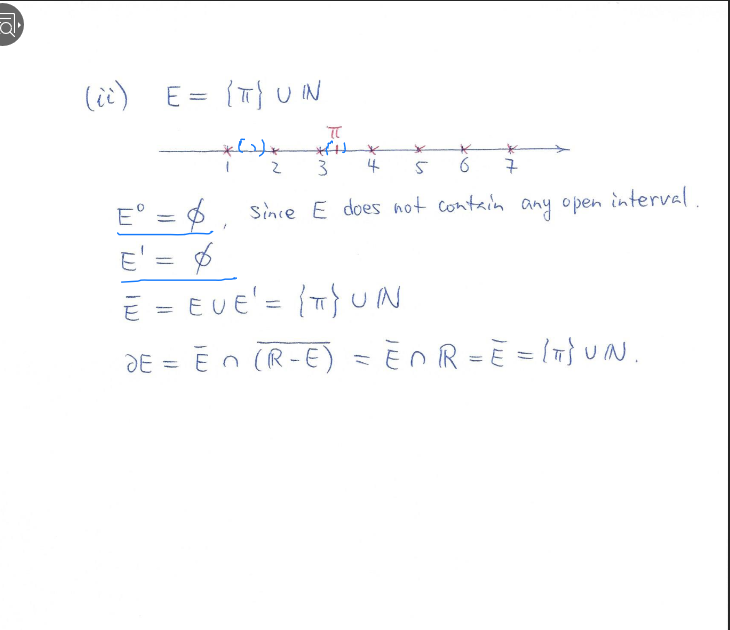 (ii) E = {π} ∪ ℕ
π
1 2 3 4 5 6 7
E° = ϕ, since E does not contain any open interval.
E' = ϕ
Ē = E ∪ E' = {π} ∪ ℕ
∂E = Ē ∩ (ℝ - E)̅ = Ē ∩ ℝ = Ē = {π} ∪ ℕ.